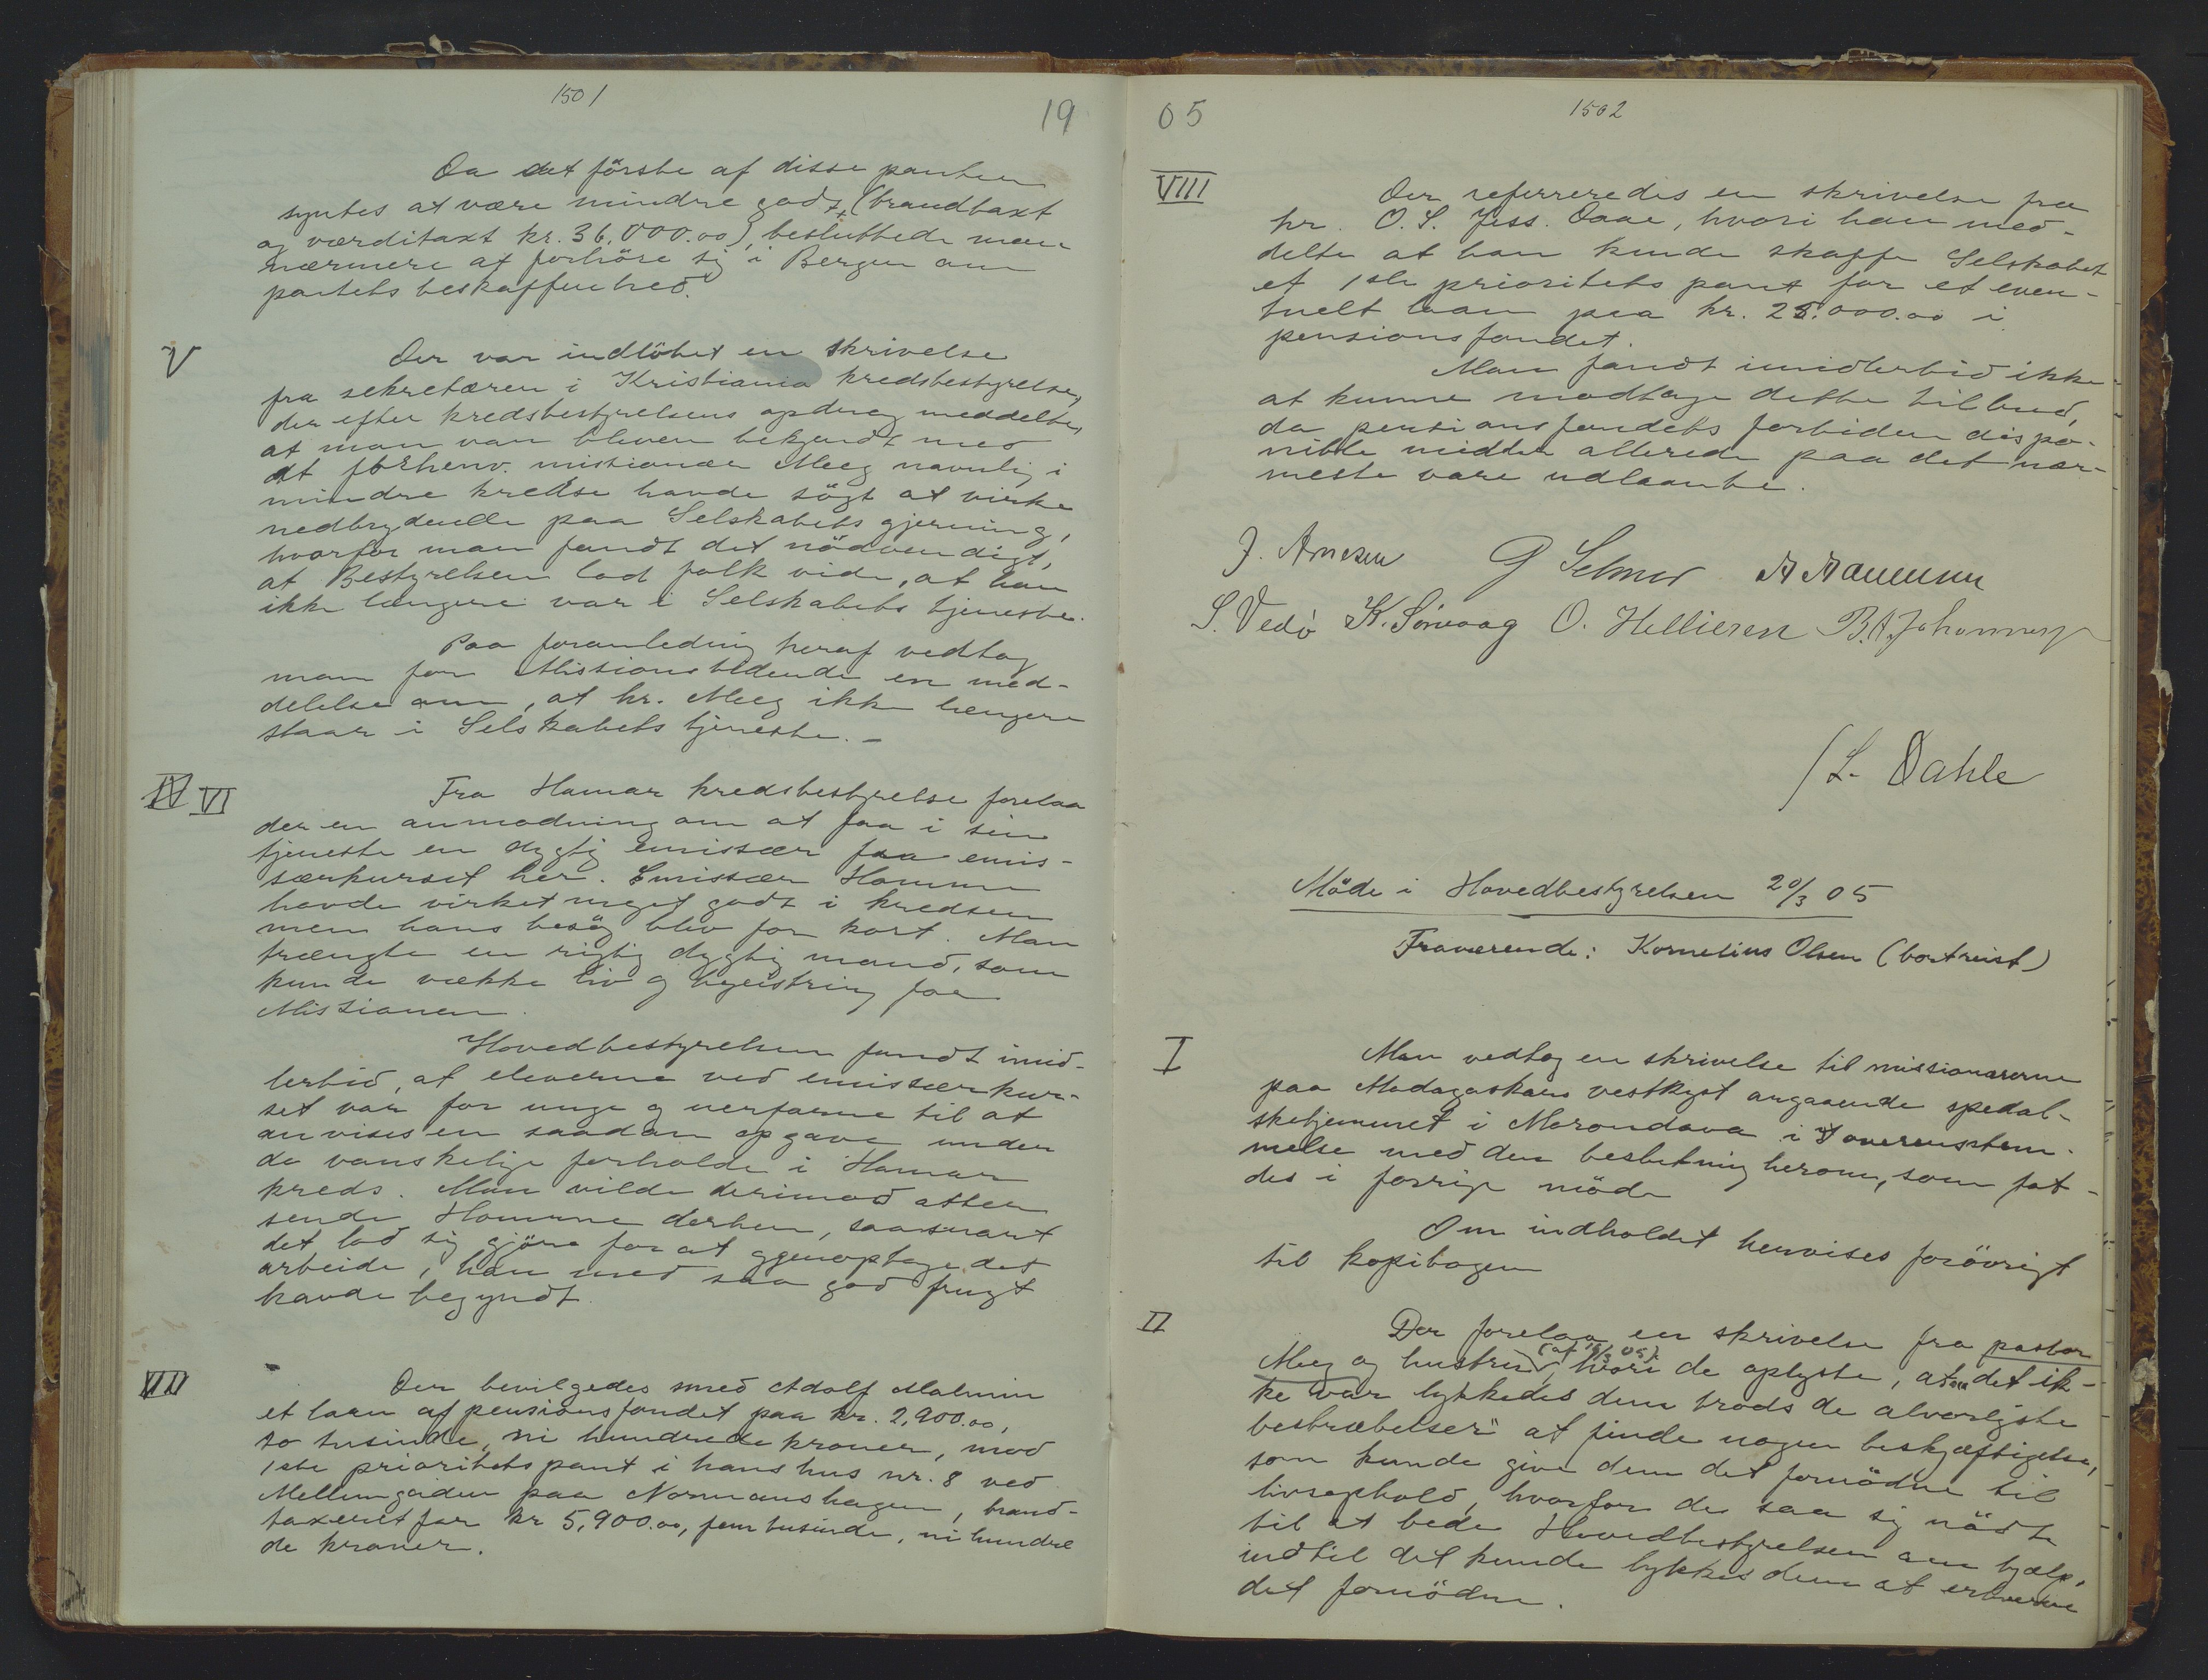 1501
19
Da det förste af disse panter
syntes at være mindre godt (brandtaxt
og værditaxt kr. 36,000.00), besluttede man
nærmere at forhöre sig i Bergen om
pantets beskaffenhed.
V
Der var indlöbet en skrivelse
fra sekretæren i Kristiania kredsbestyrelse,
der efter kredsbestyrelsens opdrag meddelte,
at man var bleven bekjendt med
at forhenv. missionær Meeg navnlig i
mindre kredse havde sögt at virke
nedbrydende paa Selskabets gjerning,
hvorfor man fandt det nödvendigt,
at Bestyrelsen lod folk vide, at han
ikke længere var i Selskabets tjeneste.
Paa foranledning heraf vedtog
man for Missionstidende en med-
delelse om, at hr. Meeg ikke længere
staar i Selskabets tjeneste. -
IV VI
Fra Hamar kredsbestyrelse forelaa
der en anmodning om at faa i sin
tjeneste en dygtig emissær fra emis-
særkurset her. Emissær Homme
havde virket meget godt i kredsen
men hans besög blev for kort. Man
trængte en rigtig dygtig mand, som
kunde vække liv og begeistring for
Missionen.
Hovedbestyrelsen fandt imid-
lertid, at eleverne ved emissærkur-
set var for unge og uerfarne til at
anvises en saadan opgave under
de vanskelige forholde i Hamar
kreds. Man vilde derimod atter
sende Homme derhen, saasnart
det lod sig gjöre for at gjenoptage det
arbeide, han med saa god frugt
havde begyndt.
VII
Der bevilgedes smed Adolf Malmin
et laan af pensionsfondet paa kr. 2,900.00,
to tusinde, ni hundrede kroner, mod
1ste prioritets pant i hans hus nr. 8 ved
Mellemgaden paa Normanshagen, brand-
taxeret for kr 5,900.00, fem tusinde, ni hundre
de kroner.
05
1502
VIII
Der referreredes en skrivelse fra
hr. O. S. Jess. Aaae, hvori han med-
delte at han kunde skaffe Selskabet
et 1ste prioritets pant for et even-
tuelt laan paa kr. 25.000.00 i
pensionsfondet.
Man fandt imidlertid ikke
at kunne modtage dette tilbud,
da pensionsfondets fortiden dispo-
nible midler allerede paa det nær-
meste vare udlaante.
J. Arnesen G Selmer
S. Vedö K. Sörvaag O. Hellieren B.A. Johannesen
/L. Dahle
Möde i Hovedbestyrelsen 20/3 05
Fraværende: Kornelius Olsen (bortreist)
I
Man vedtog en skrivelse til missionærerne
paa Madagaskars vestkyst angaaende spedal-
skehjemmet i Morondava i overensstem-
melse med den beslutning herom, som fat-
des i forrige möde
Om indholdet henvises forövrigt
til kopibogen
II
Der forelaa en skrivelse fra pastor
Meeg og hustru (af 15/3 05), hvori de oplyste, at det ik-
ke var lykkedes dem trods de alvorligste
bestræbelser at finde nogen beskjæftigelse,
som kunde give dem det fornödne til
livsophold, hvorfor de saa sig nödte
til at bede Hovedbestyrelsen om hjælp,
indtil det kunde lykkes dem at erhverve
det fornödne.